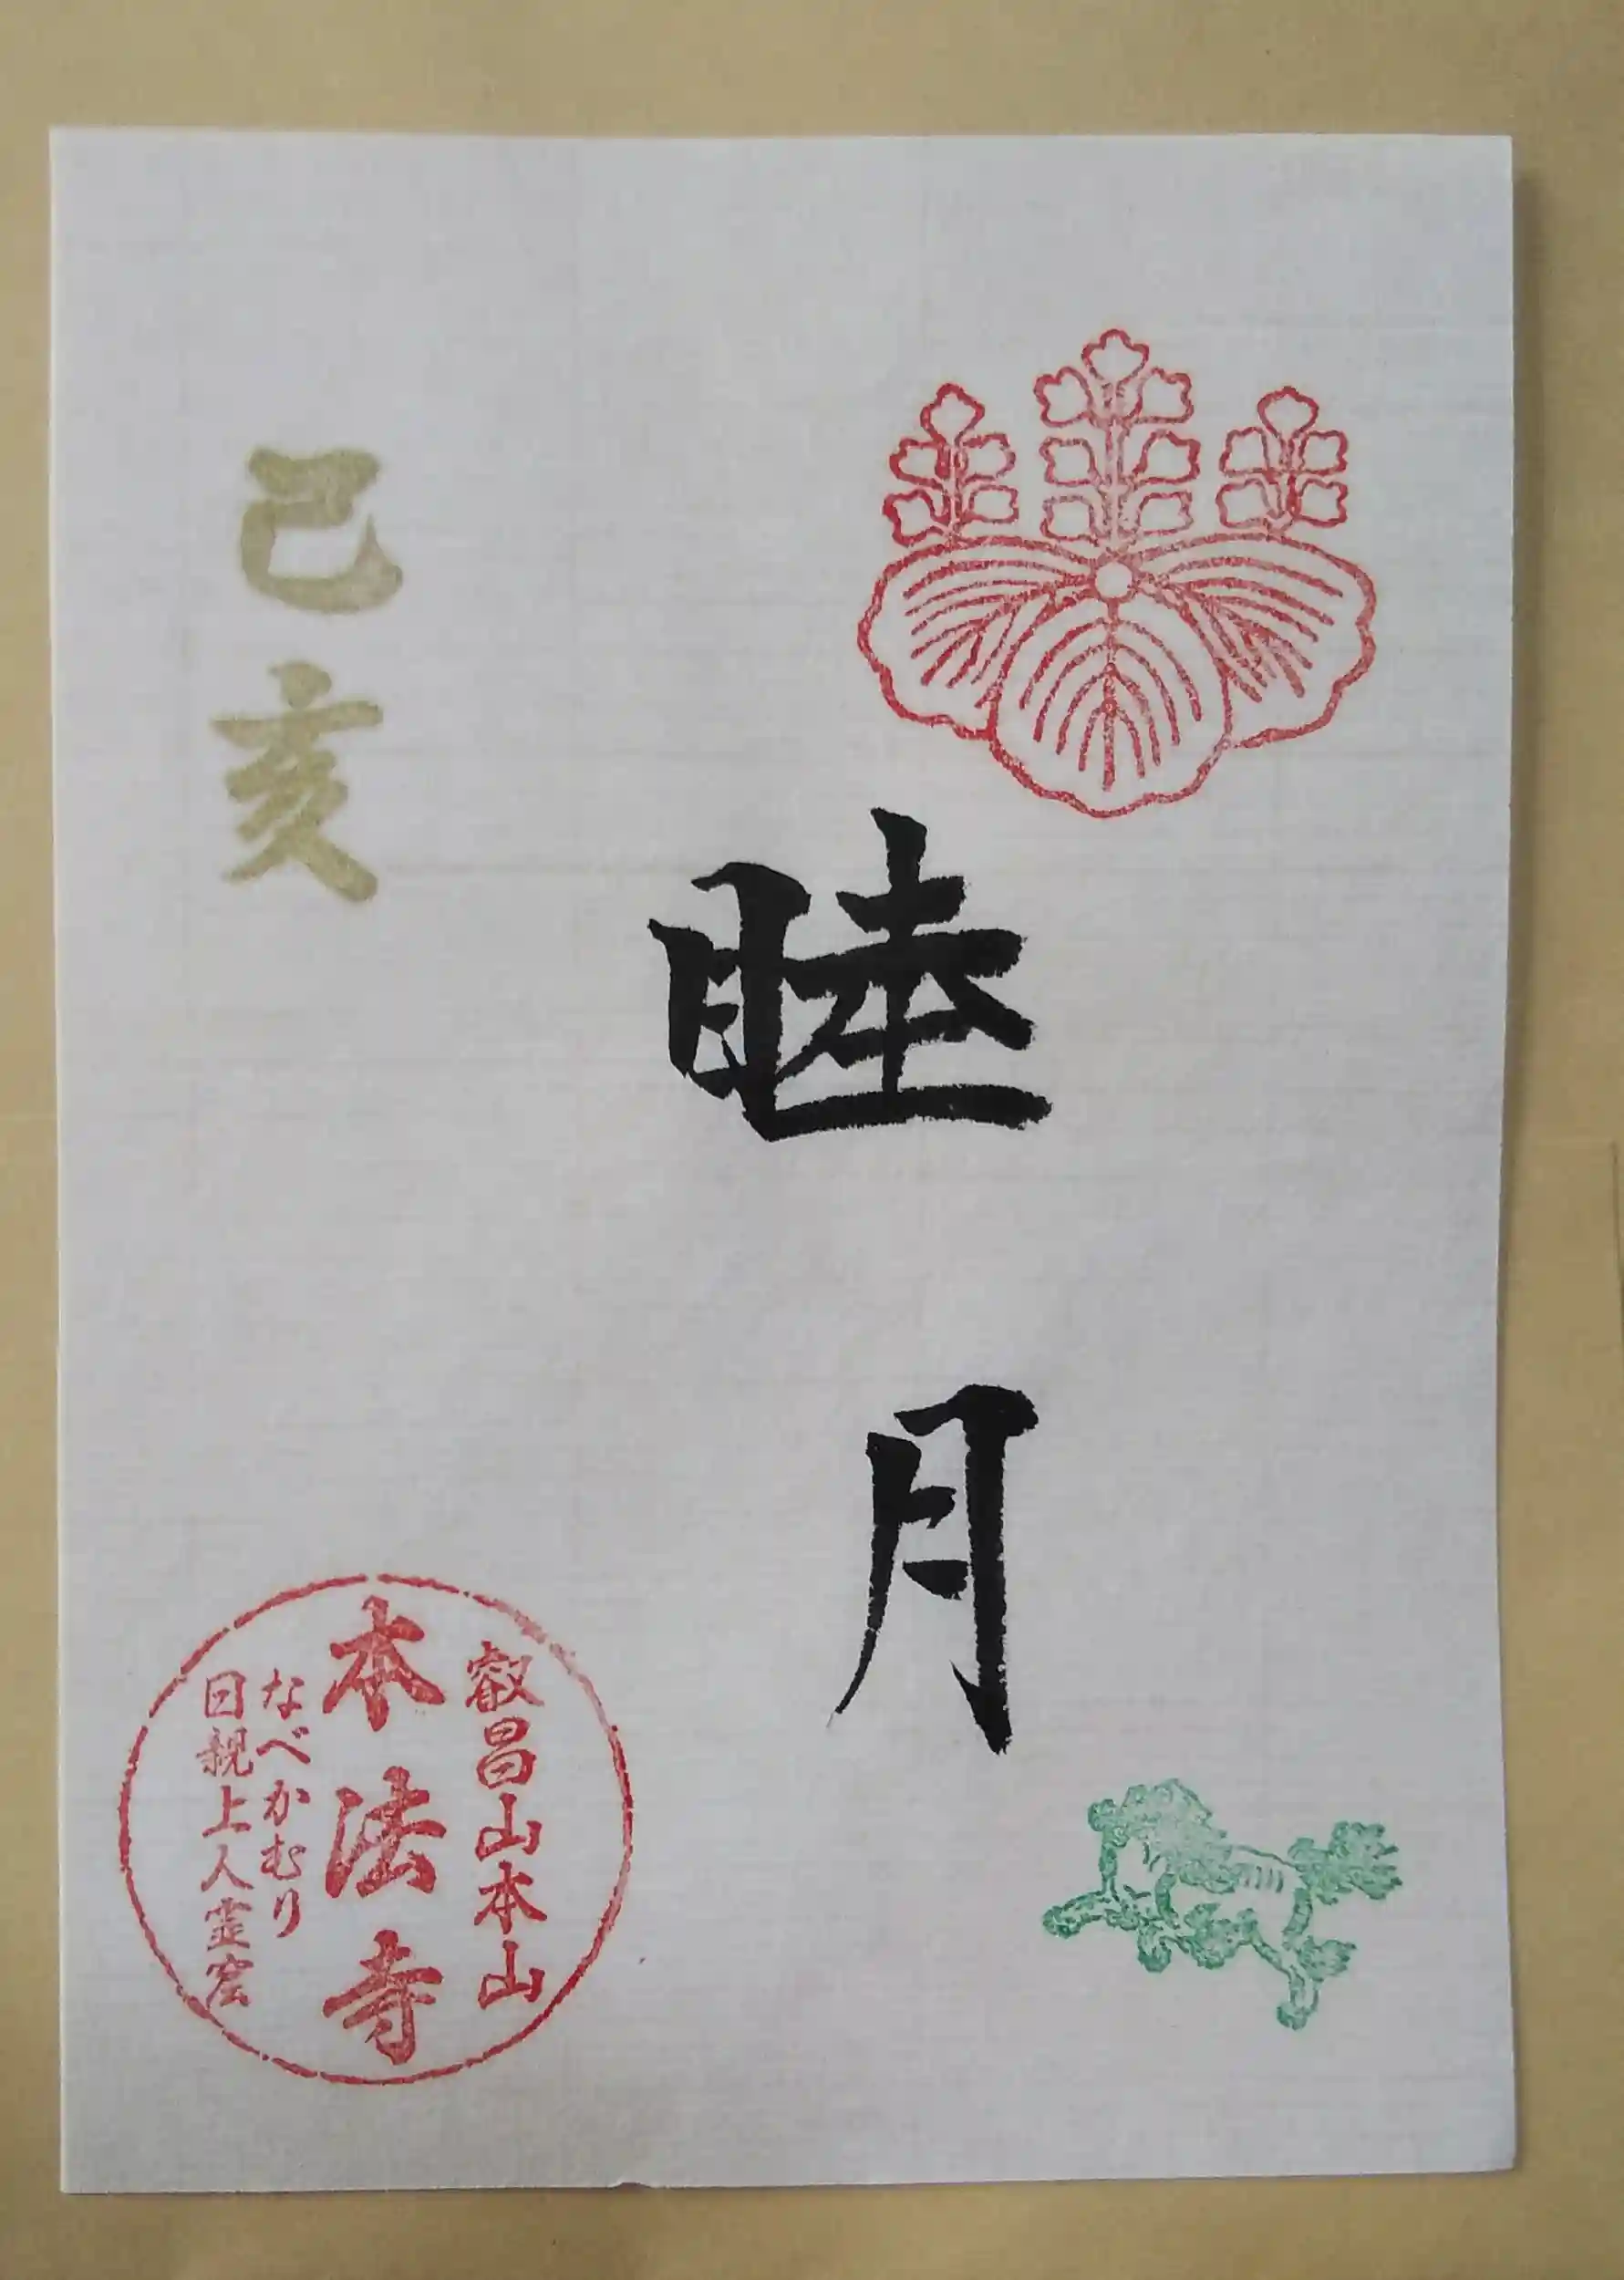 睦月
己亥
叡昌山本山
本法寺
なべかむり
日親上人霊窟